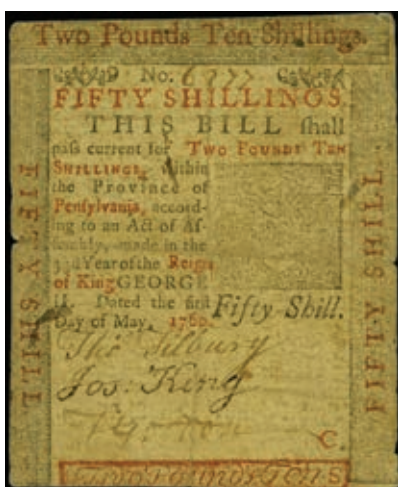 Two Pounds Ten Shillings.
No: 6277
FIFTY SHILLINGS.
THIS BILL ſhall
paſs current for TWO POUNDS TEN
SHILLINGS, within
the Province of
Penſylvania, accord-
ing to an Act of Aſ-
ſembly, made in the
33d Year of the Reign
of King GEORGE
II. Dated the firſt
Day of May, 1760.
Fifty Shill.
FIFTY SHILL
FIFTY SHILL.
Thos Tilbury
Jos: King
C.